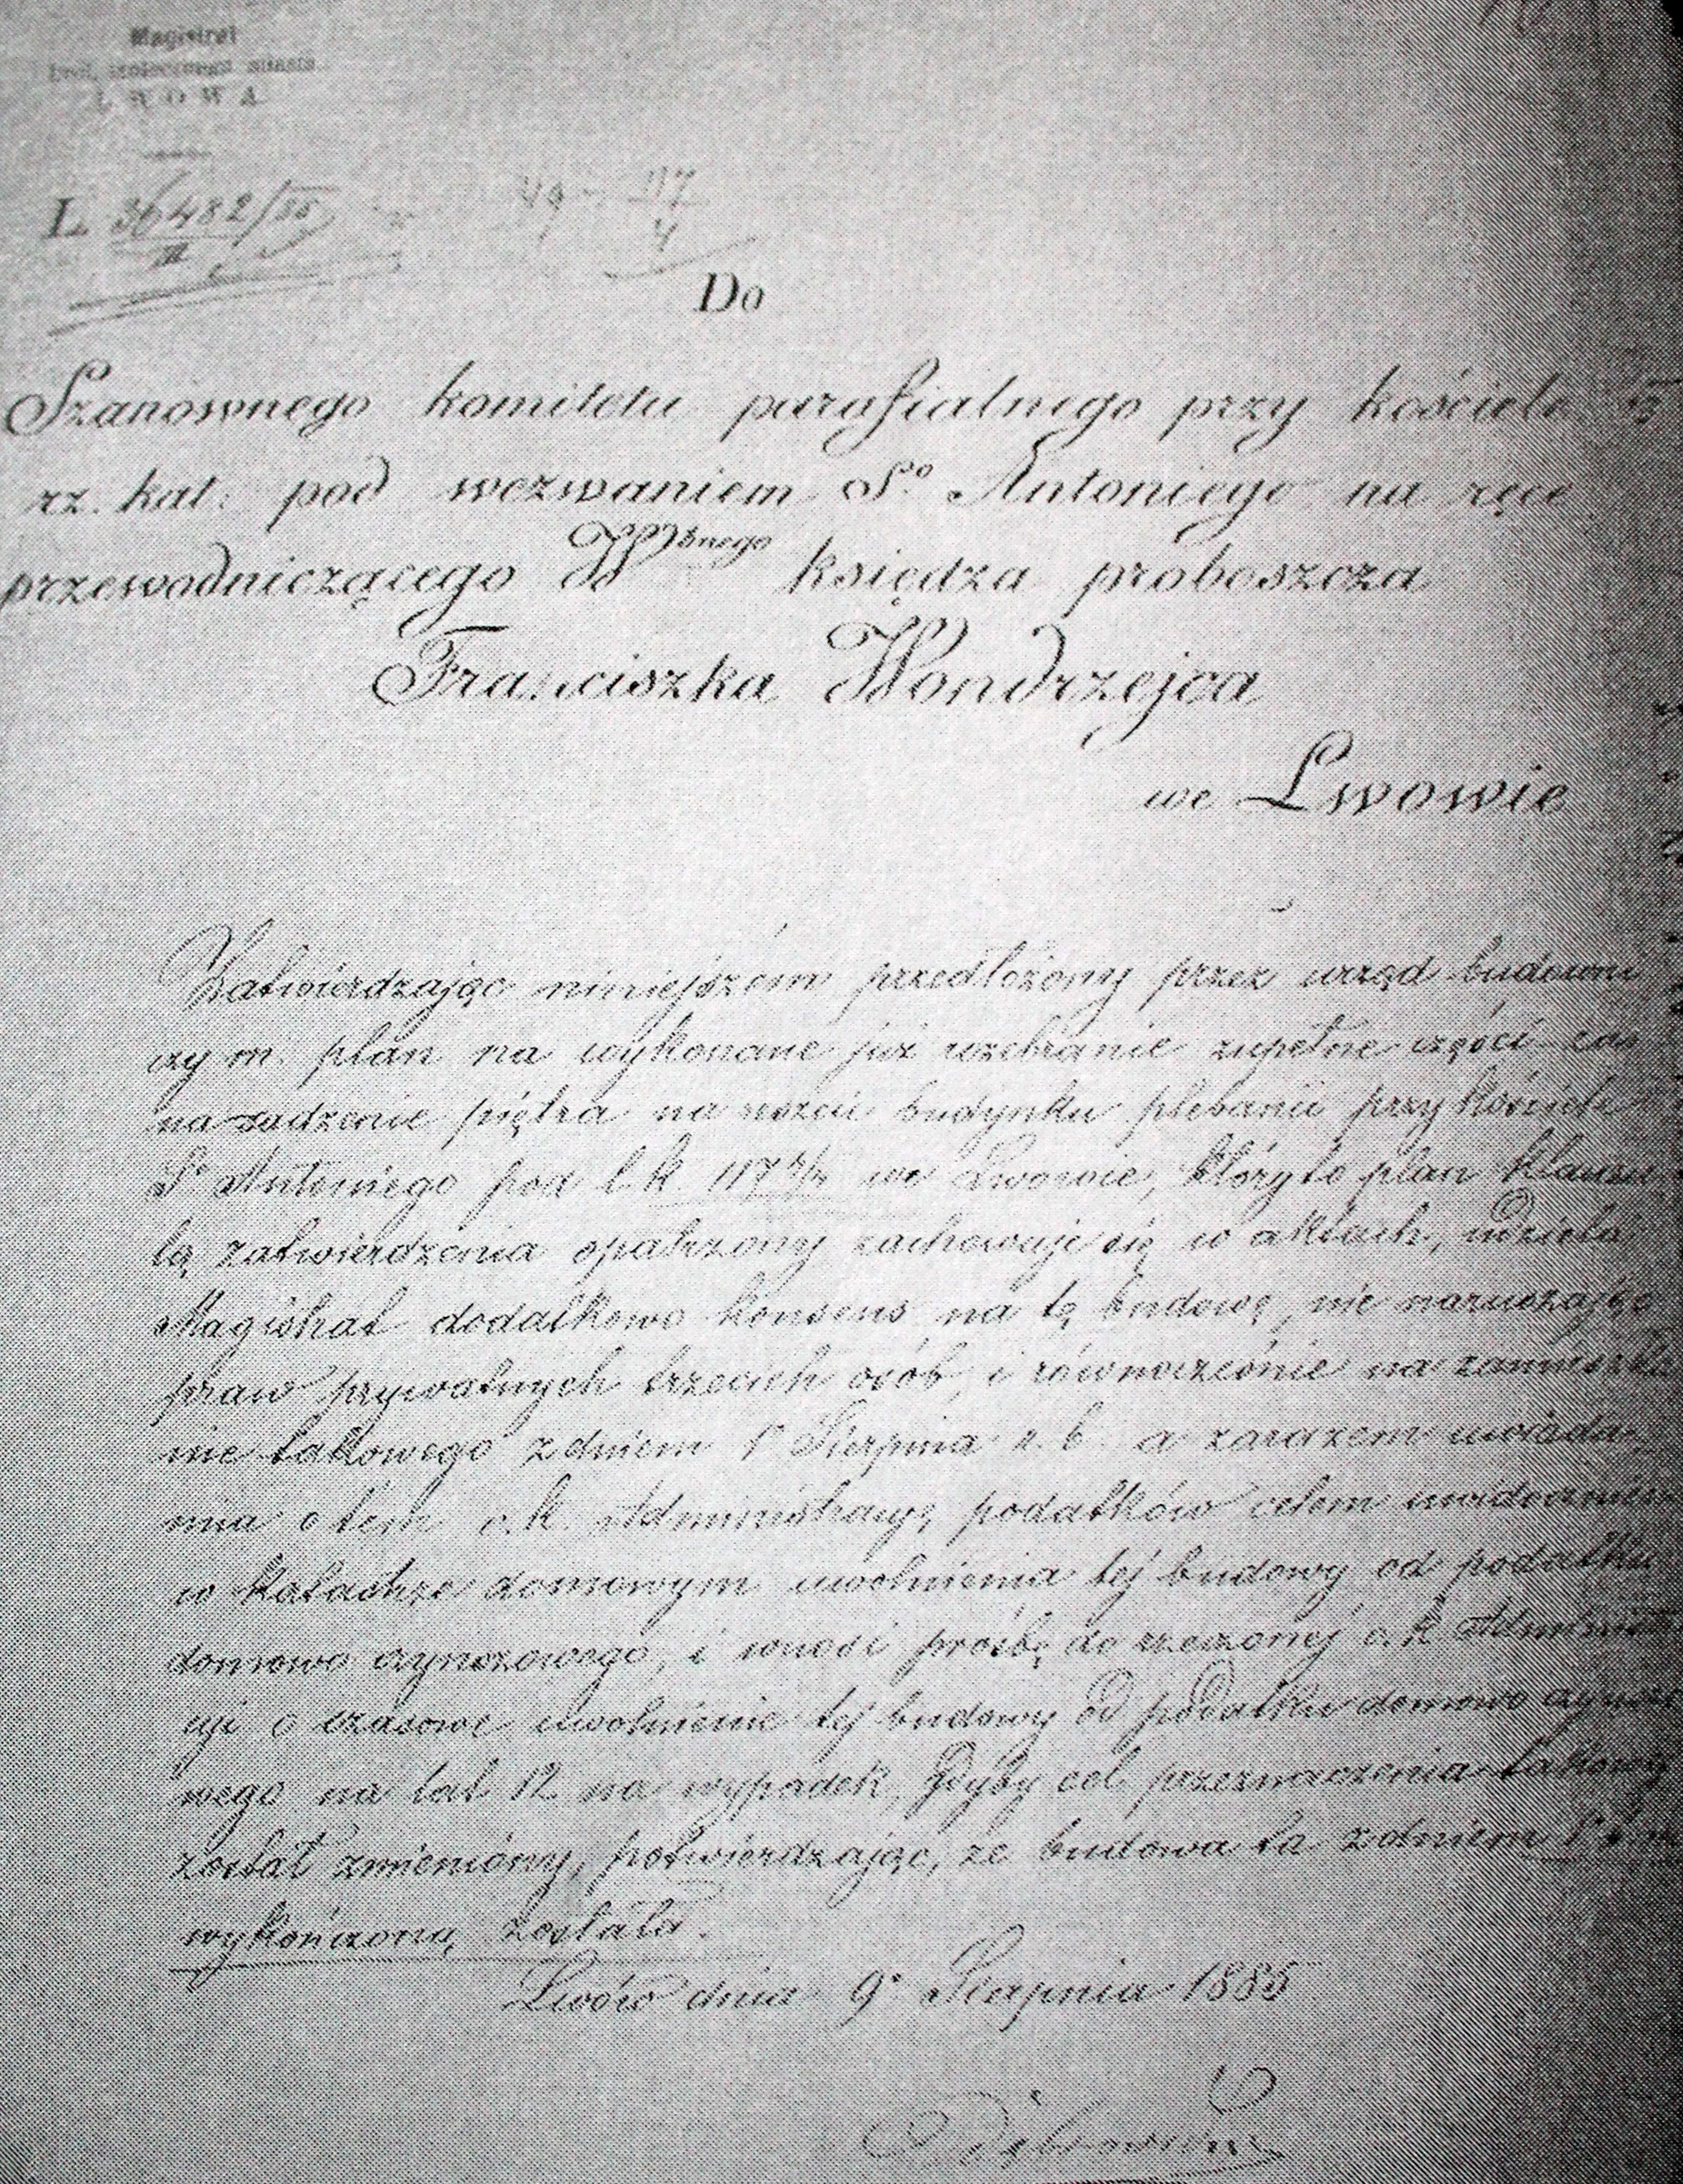 Magistrat
król. stołecznego miasta
LWOWA
L. 36482/85
III
117
4
Do
Szanownego komitetu parafialnego przy kościele
rz. kat: pod wezwaniem Sº Antoniego na ręce
przewodniczącego Wbnego księdza proboszcza
Franciszka Wondrzejca
we Lwowie
Zatwierdzając niniejszem przedłożony przez urząd budowni
czy m. plan na wykonane już rozebranie zupełne części
nasadzenie piętra na reszcie budynku plebanii przy kościele
Sº Antoniego pod l.k. 117 4/4 we Lwowie, któryto plan klauzu
lą zatwierdzenia opatrzony zachowuje się w aktach, udziela
Magistrat dodatkowo konsens na tę budowę, nie naruszając
praw prywatnych trzecich osób, i równocześnie na zamieszka
nie takowego z dniem 1º Sierpnia r. b. a zarazem uwiada
mia o tem c.k. Administracyę podatków celem uwidocznienia
w katastrze domowym uwolnienia tej budowy od podatku
domowo czynszowego, i wnosi prośbę do rzeczonej c.k. Administra
cyi o czasowe uwolnienie tej budowy od podatku domowo czynszo
wego na lat 12 na wypadek, gdyby cel przeznaczenia takowej
został zmieniony, potwierdzając, że budowa ta z dniem 1º
wykończoną została.
Lwów dnia 9º Sierpnia 1885